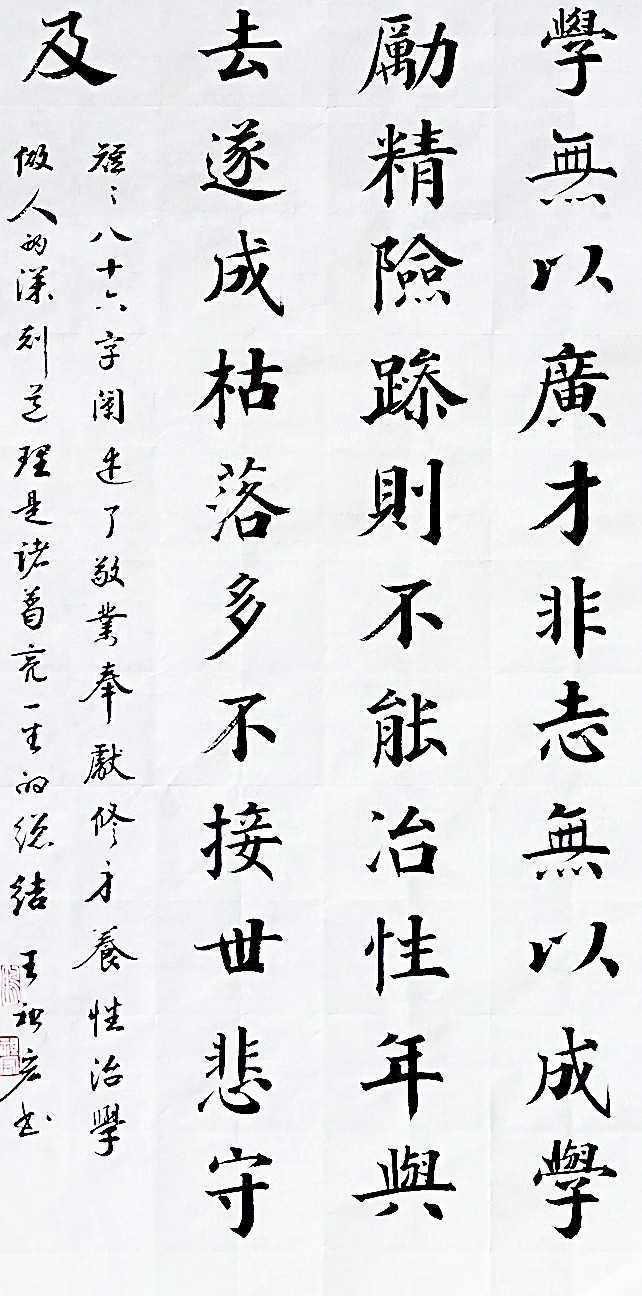 學無以廣才非志無以成學
勵精險躁則不能冶性年與
去遂成枯落多不接世悲守
及
短〻八十六字闡述了敬業奉獻修身養性治學
做人的深刻道理是诸葛亮一生的總结 王祖宏书